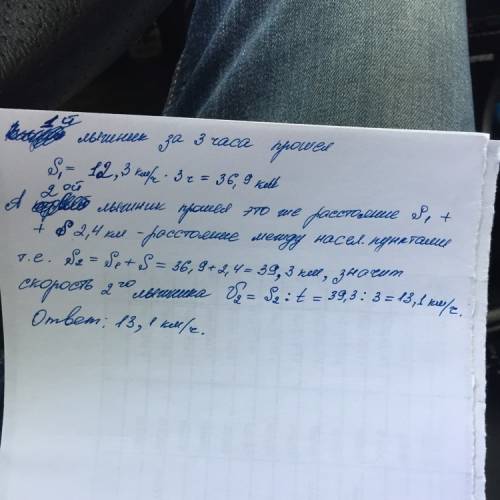 1й лыжник за 3 часа прошел
S₁ = 12,3 км/ч · 3 ч = 36,9 км
2 ой
А лыжник прошел это же расстояние S₁ +
+ S 2,4 км - расстояние между насел. пунктами
т.е. S₂ = S₁ + S = 36,9 + 2,4 = 39,3 км, значит
скорость 2го лыжника V₂ = S₂ : t = 39,3 : 3 = 13,1 км/ч.
Ответ: 13,1 км/ч.